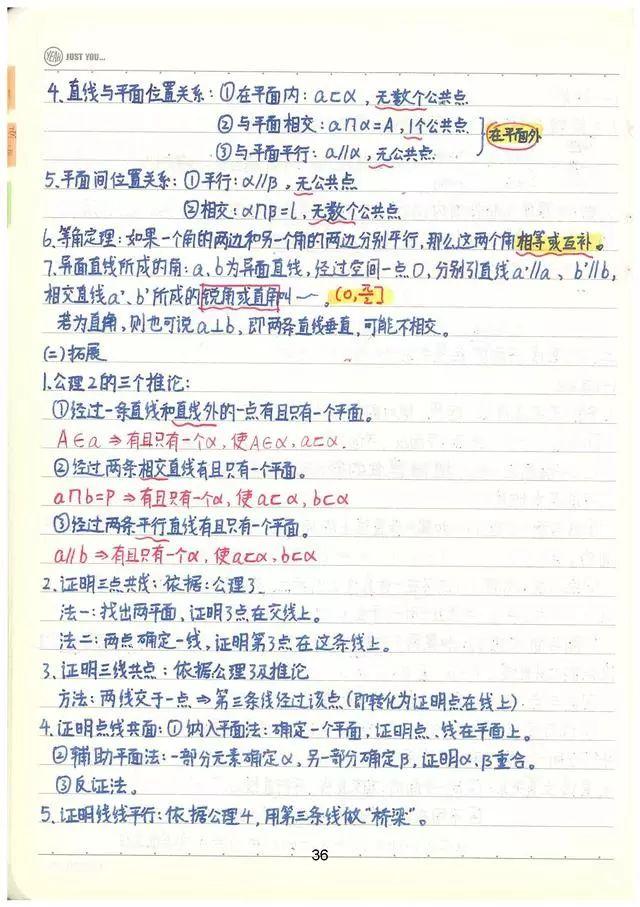 YEAH JUST YOU...
4、直线与平面位置关系:①在平面内:a⊂α,无数个公共点
②与平面相交:a∩α=A,1个公共点
③与平面平行:a∥α,无公共点
在平面外
5、平面间位置关系:①平行:α∥β,无公共点
②相交:α∩β=l,无数个公共点
6、等角定理:如果一个角的两边和另一个角的两边分别平行,那么这两个角相等或互补。
7、异面直线所成的角:a、b为异面直线,经过空间一点O,分别引直线a'∥a、b'∥b,
相交直线a'、b'所成的锐角或直角叫~。(0,π/2]
若为直角,则也可说a⊥b,即两条直线垂直,可能不相交。
(二)拓展
1.公理2的三个推论:
①经过一条直线和直线外的一点有且只有一个平面。
A∈a⇒有且只有一个α,使A∈α,a⊂α.
②经过两条相交直线有且只有一个平面。
a∩b=P⇒有且只有一个α,使a⊂α,b⊂α
③经过两条平行直线有且只有一个平面。
a∥b⇒有且只有一个α,使a⊂α,b⊂α
2、证明三点共线:依据:公理3
法一:找出两平面,证明3点在交线上。
法二:两点确定一线,证明第3点在这条线上。
3、证明三线共点:依据公理3及推论
方法:两线交于一点⇒第三条线经过该点(即转化为证明点在线上)
4、证明点线共面:①纳入平面法:确定一个平面,证明点、线在平面上。
②辅助平面法:一部分元素确定α,另一部分确定β,证明α、β重合。
③反证法。
5、证明线线平行:依据公理4,用第三条线做“桥梁”。
36